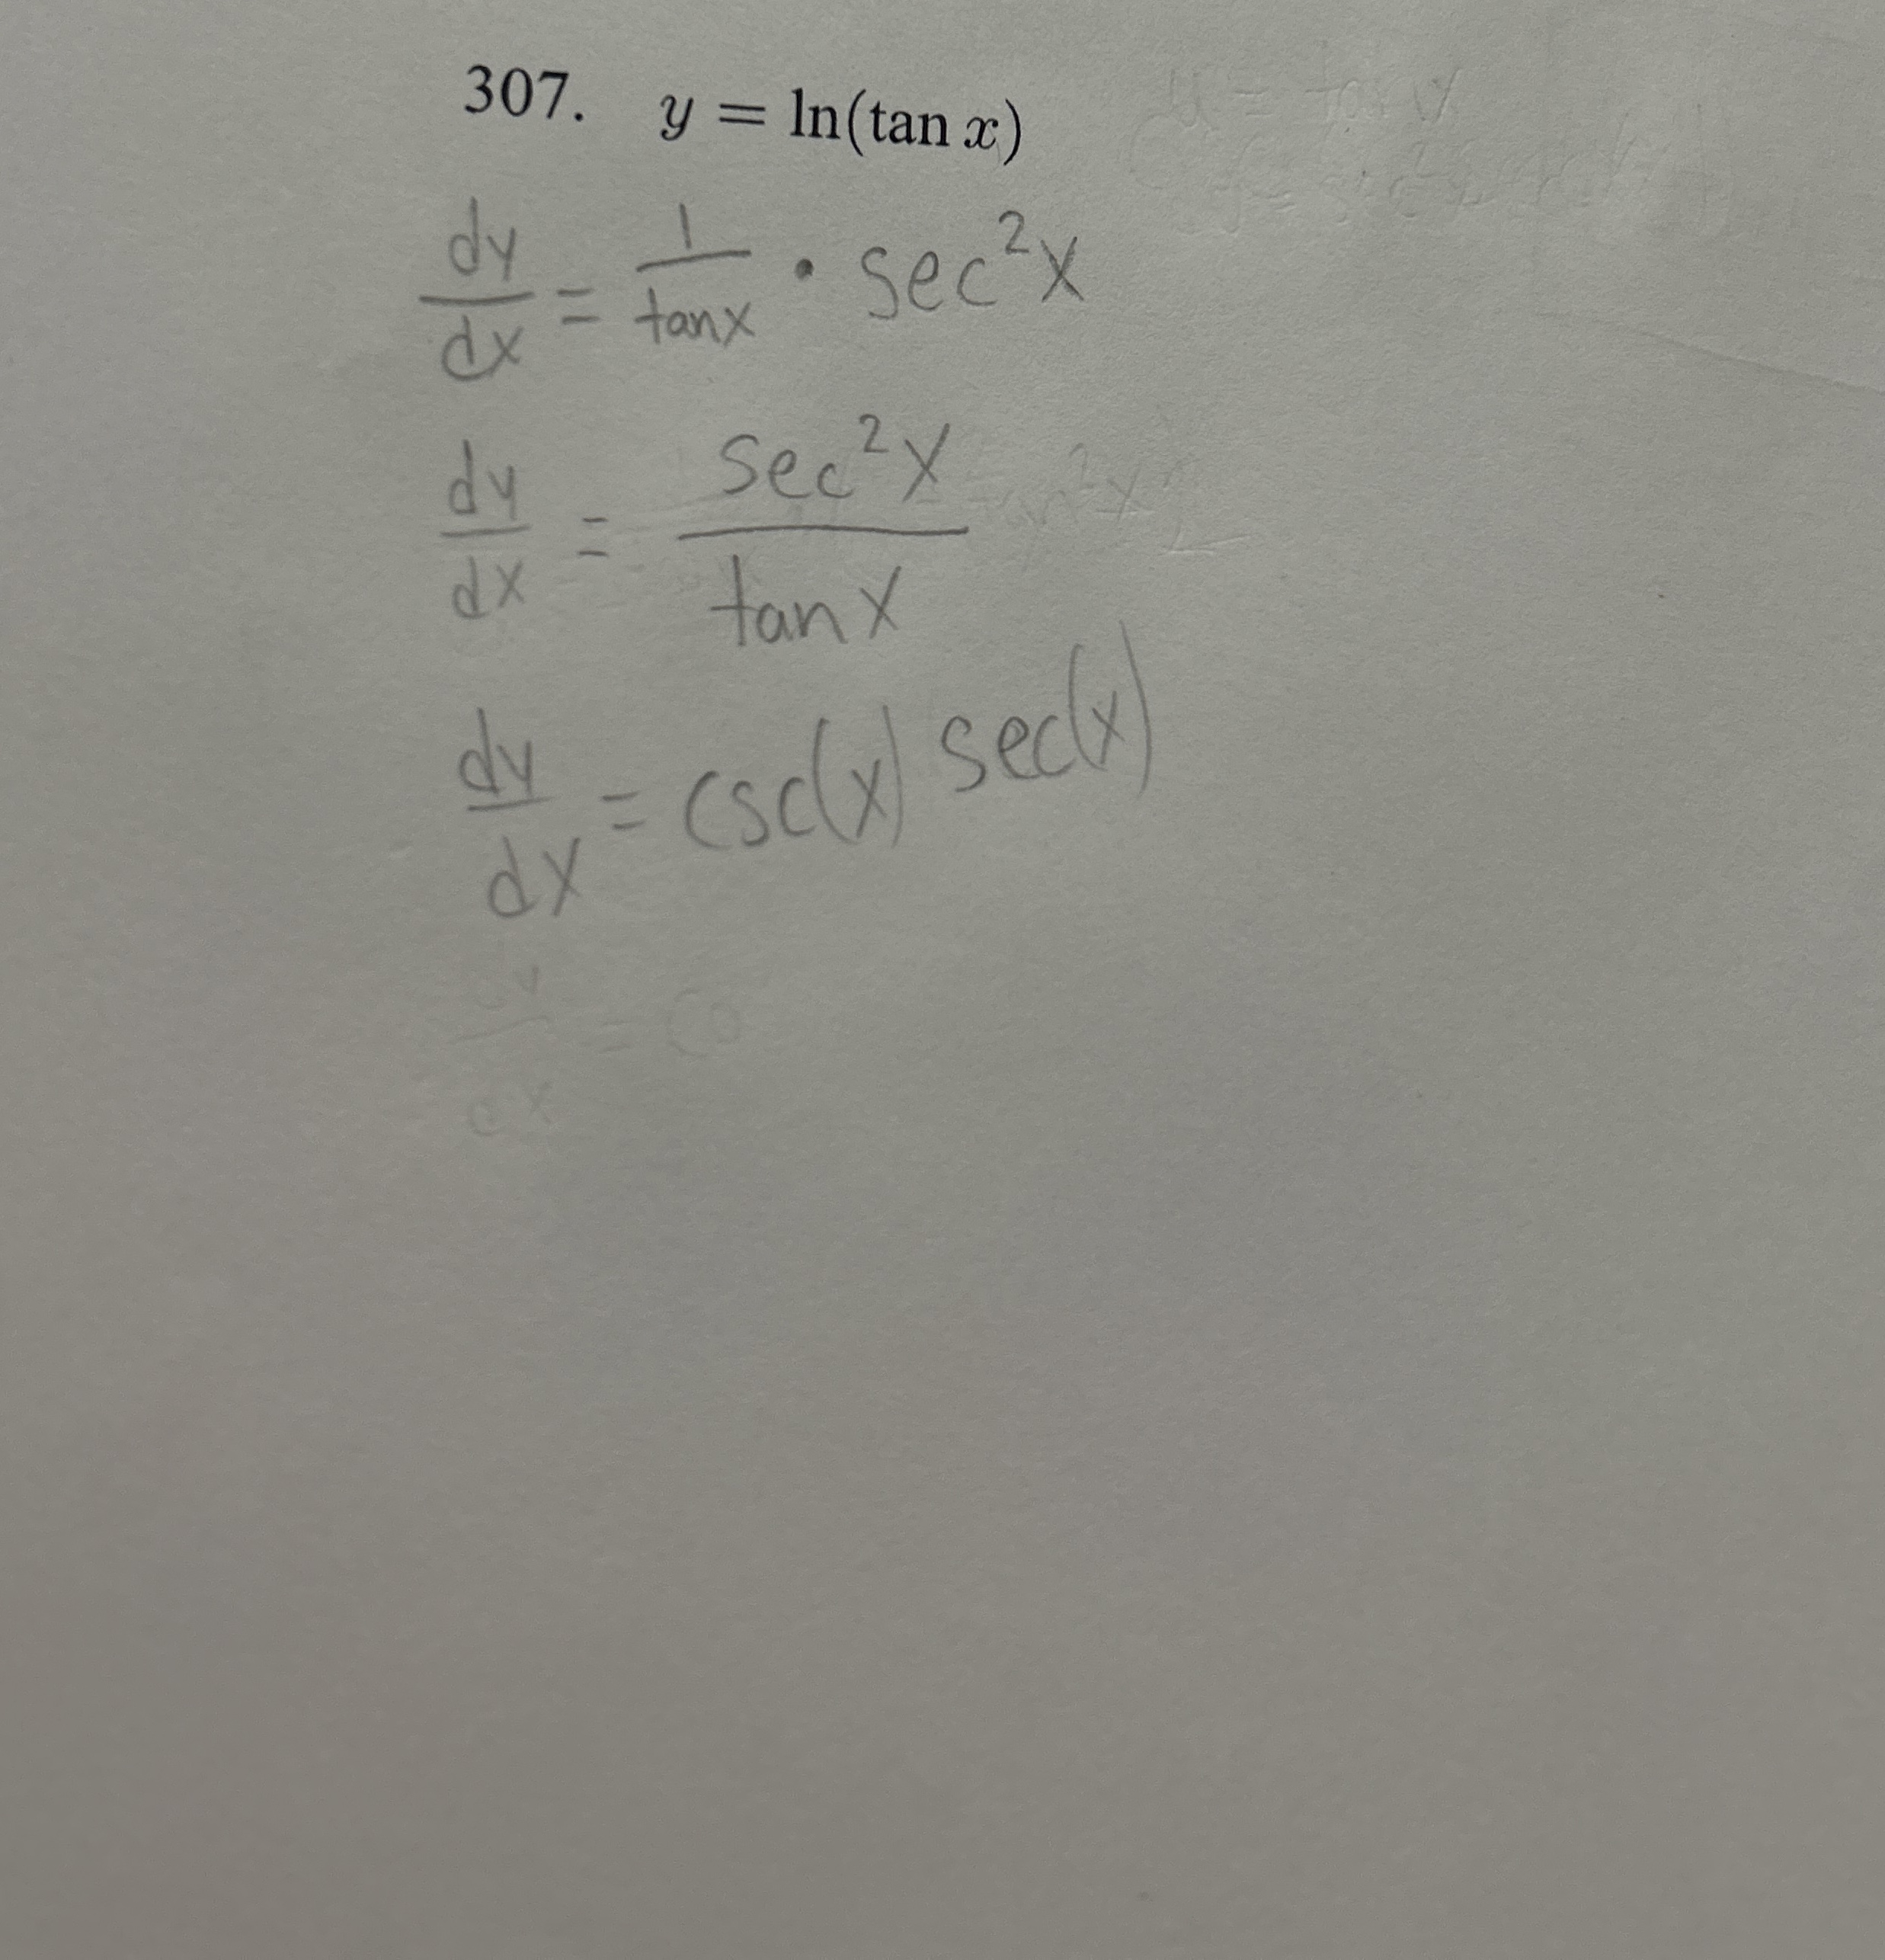 307. y = ln(tan x)
dy/dx = 1/tanx · sec²x
dy/dx = sec²x/tanx
dy/dx = csc(x) sec(x)